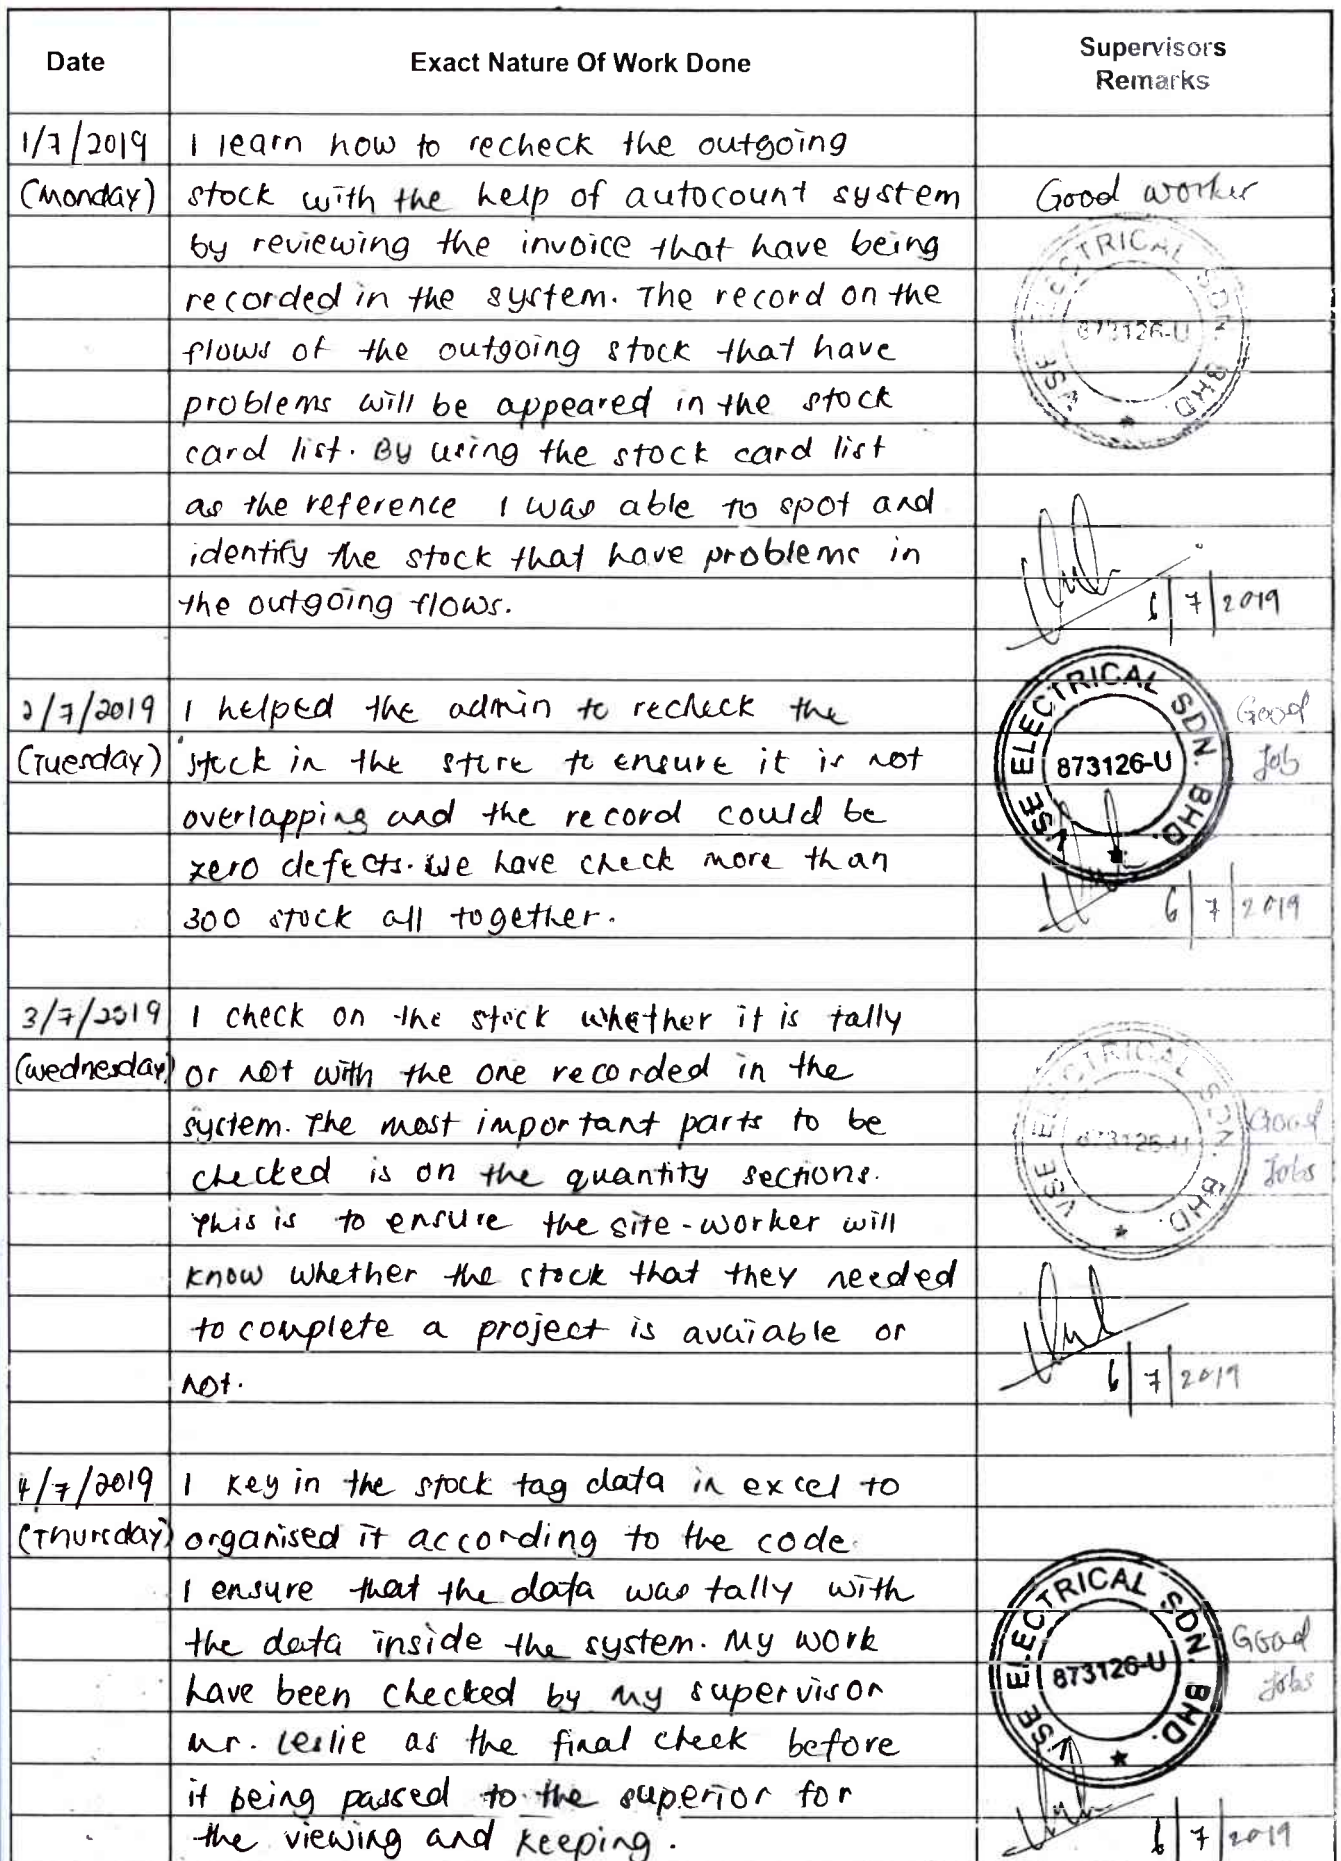 Date Exact Nature Of Work Done Supervisors Remarks
1/7/2019 I learn how to recheck the outgoing
(Monday) stock with the help of autocount system Good worker
by reviewing the invoice that have being
recorded in the system. The record on the
flows of the outgoing stock that have
problems will be appeared in the stock
card list. By using the stock card list
as the reference I was able to spot and
identify the stock that have problems in
the outgoing flows.
VSE ELECTRICAL SDN. BHD.
873126-U
6/7/2019
2/7/2019 I helped the admin to recheck the Good
(Tuesday) stock in the store to ensure it is not Job
overlapping and the record could be
zero defects. We have check more than
300 stock all together.
VSE ELECTRICAL SDN. BHD.
873126-U
6/7/2019
3/7/2019 I check on the stock whether it is tally
(Wednesday) or not with the one recorded in the
system. The most important parts to be Good
checked is on the quantity sections. Jobs
This is to ensure the site-worker will
know whether the stock that they needed
to complete a project is avaiable or
not.
VSE ELECTRICAL SDN. BHD.
873126-U
6/7/2019
4/7/2019 I key in the stock tag data in excel to
(Thursday) organised it according to the code.
I ensure that the data was tally with
the data inside the system. My work Good
have been checked by my supervisor Jobs
Mr. Leslie as the final check before
it being passed to the superior for
the viewing and keeping.
VSE ELECTRICAL SDN. BHD.
873126-U
6/7/2019